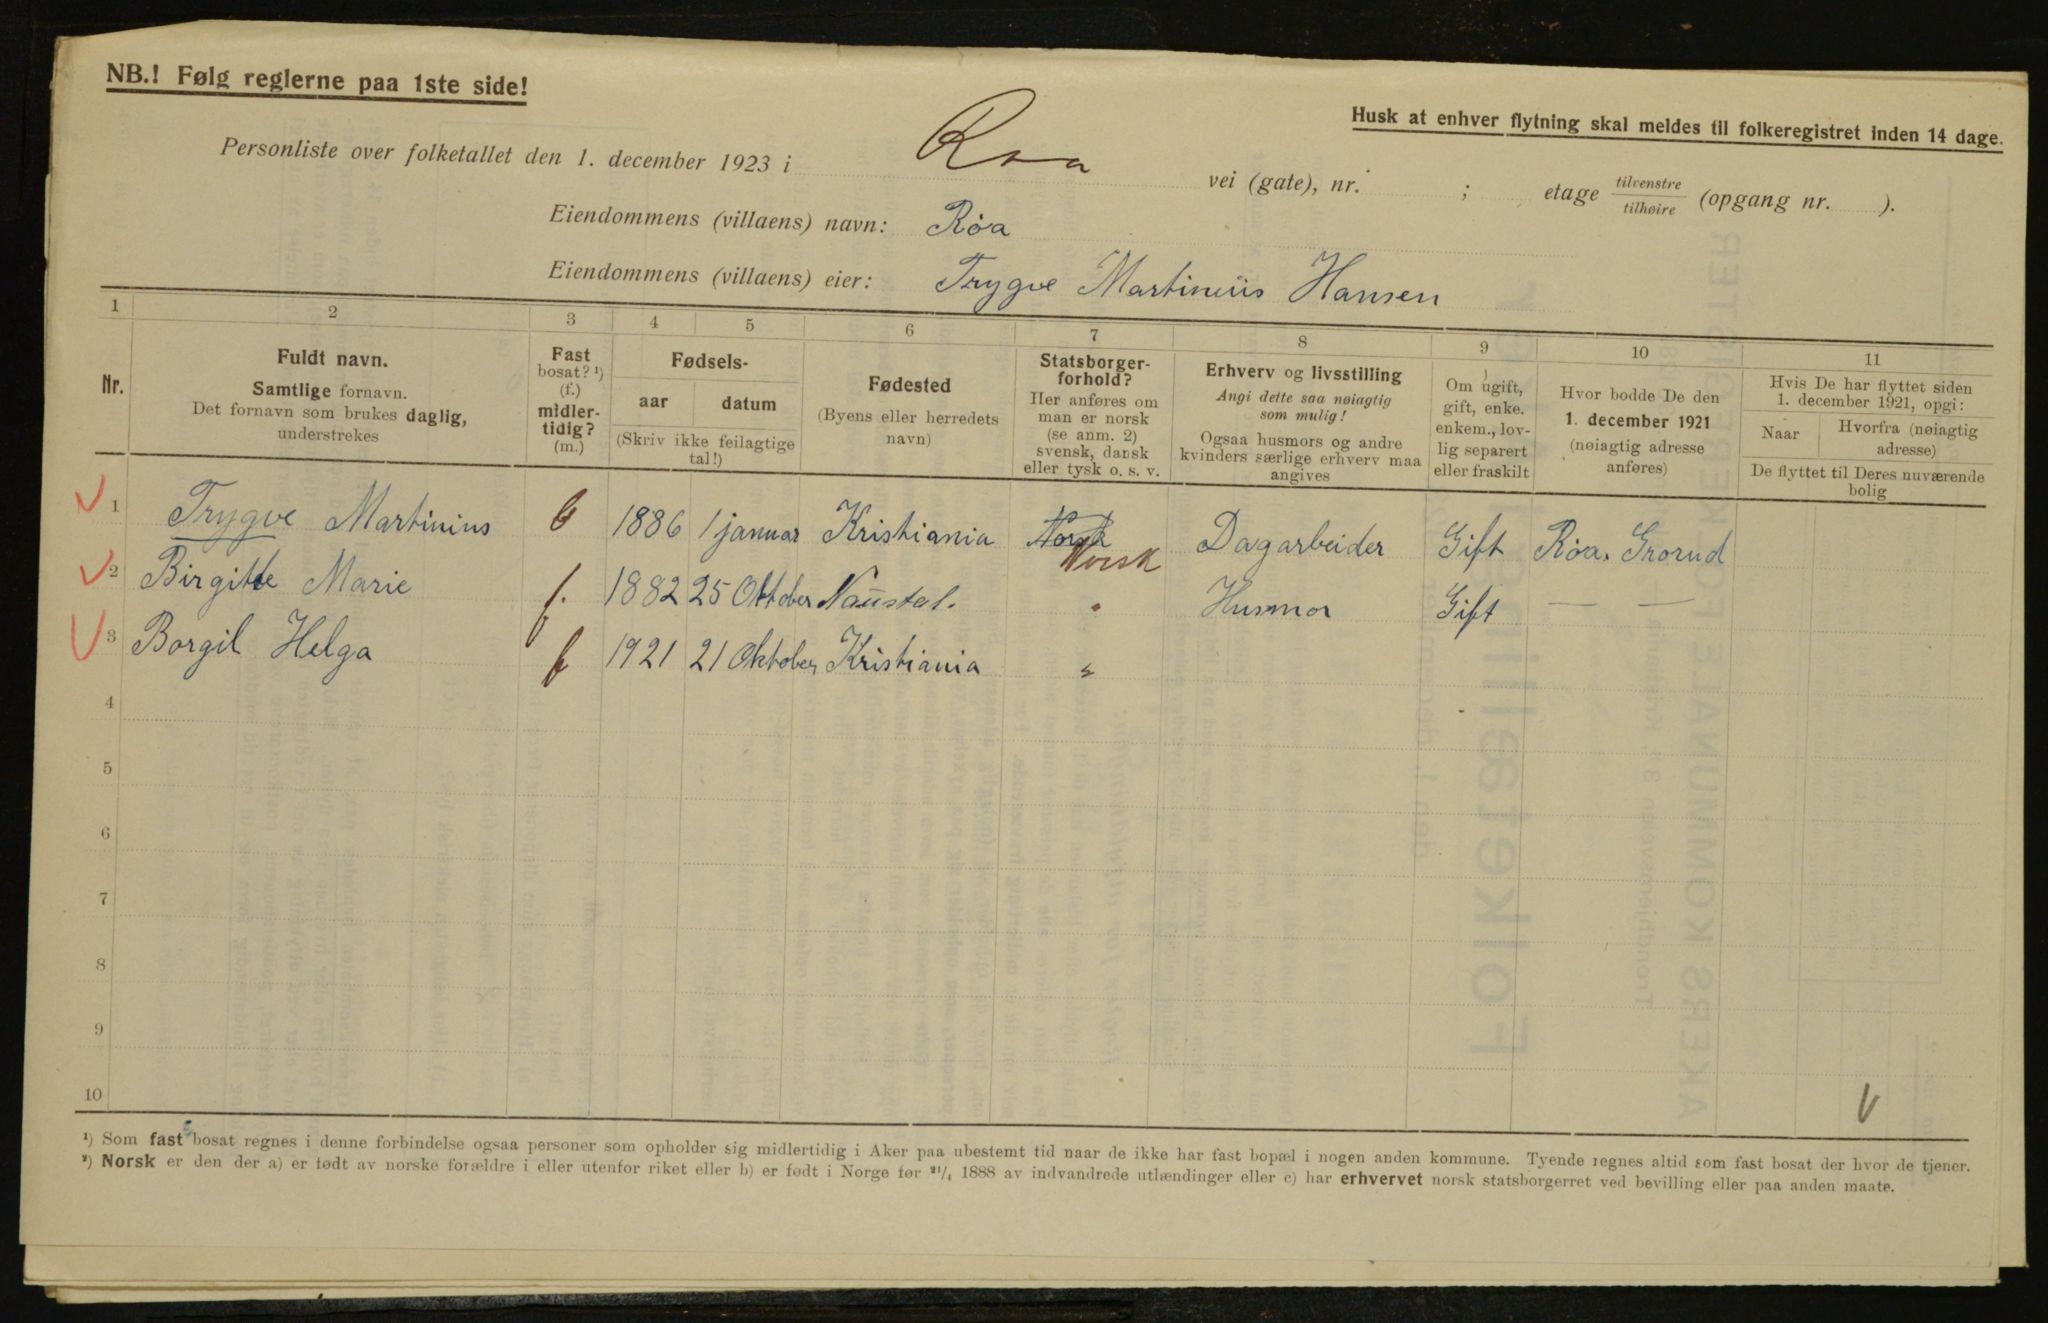 NB.! Følg reglerne paa 1ste side!
Husk at enhver flytning skal meldes til folkeregistret inden 14 dage.
Personliste over folketallet den 1. december 1923 i Roa vei (gate), nr. ; etage tilvenstre tilhøire (opgang nr. ).
Eiendommens (villaens) navn: Røa
Eiendommens (villaens) eier: Trygve Martinius Hansen
1 2 3 4 5 6 7 8 9 10 11
Nr.
Fuldt navn.
Samtlige fornavn.
Det fornavn som brukes daglig,
understrekes
Fast
bosat? ¹)
(f.)
midler-
tidig?
(m.)
Fødsels-
aar datum
(Skriv ikke feilagtige
tal!)
Fødested
(Byens eller herredets
navn)
Statsborger-
forhold?
Her anføres om
man er norsk
(se anm. 2)
svensk, dansk
eller tysk o. s. v.
Erhverv og livsstilling
Angi dette saa nøiagtig
som mulig!
Ogsaa husmors og andre
kvinders særlige erhverv maa
angives
Om ugift,
gift, enke.
enkem., lov-
lig separert
eller fraskilt
Hvor bodde De den
1. december 1921
(nøiagtig adresse
anføres)
Hvis De har flyttet siden
1. december 1921, opgi:
Naar Hvorfra (nøiagtig
adresse)
De flyttet til Deres nuværende
bolig
1 Trygve Martinius 1886 1 januar Kristiania Norsk Norsk Dagarbeider Gift Røa. Grorud
2 Birgitte Marie f. 1882 25 Oktober Naustal. " Husmor Gift — —
3 Borgil Helga f 1921 21 Oktober Kristiania "
4
5
6
7
8
9
10
¹) Som fast bosat regnes i denne forbindelse ogsaa personer som opholder sig midlertidig i Aker paa ubestemt tid naar de ikke har fast bopæl i nogen anden kommune. Tyende regnes altid som fast bosat der hvor de tjener.
²) Norsk er den der a) er født av norske forældre i eller utenfor riket eller b) er født i Norge før ²¹/₄ 1888 av indvandrede utlændinger eller c) har erhvervet norsk statsborgerret ved bevilling eller paa anden maate.